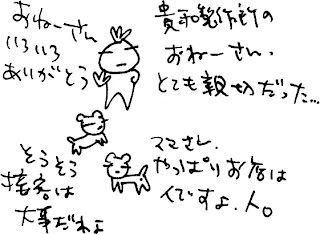 おねーさん
いろいろ
ありがとう
貴和製作所の
おねーさん、
とても親切だった…
そうそう
接客は
大事だわよ
ママさん、
やっぱりお店は
人ですよ、人。